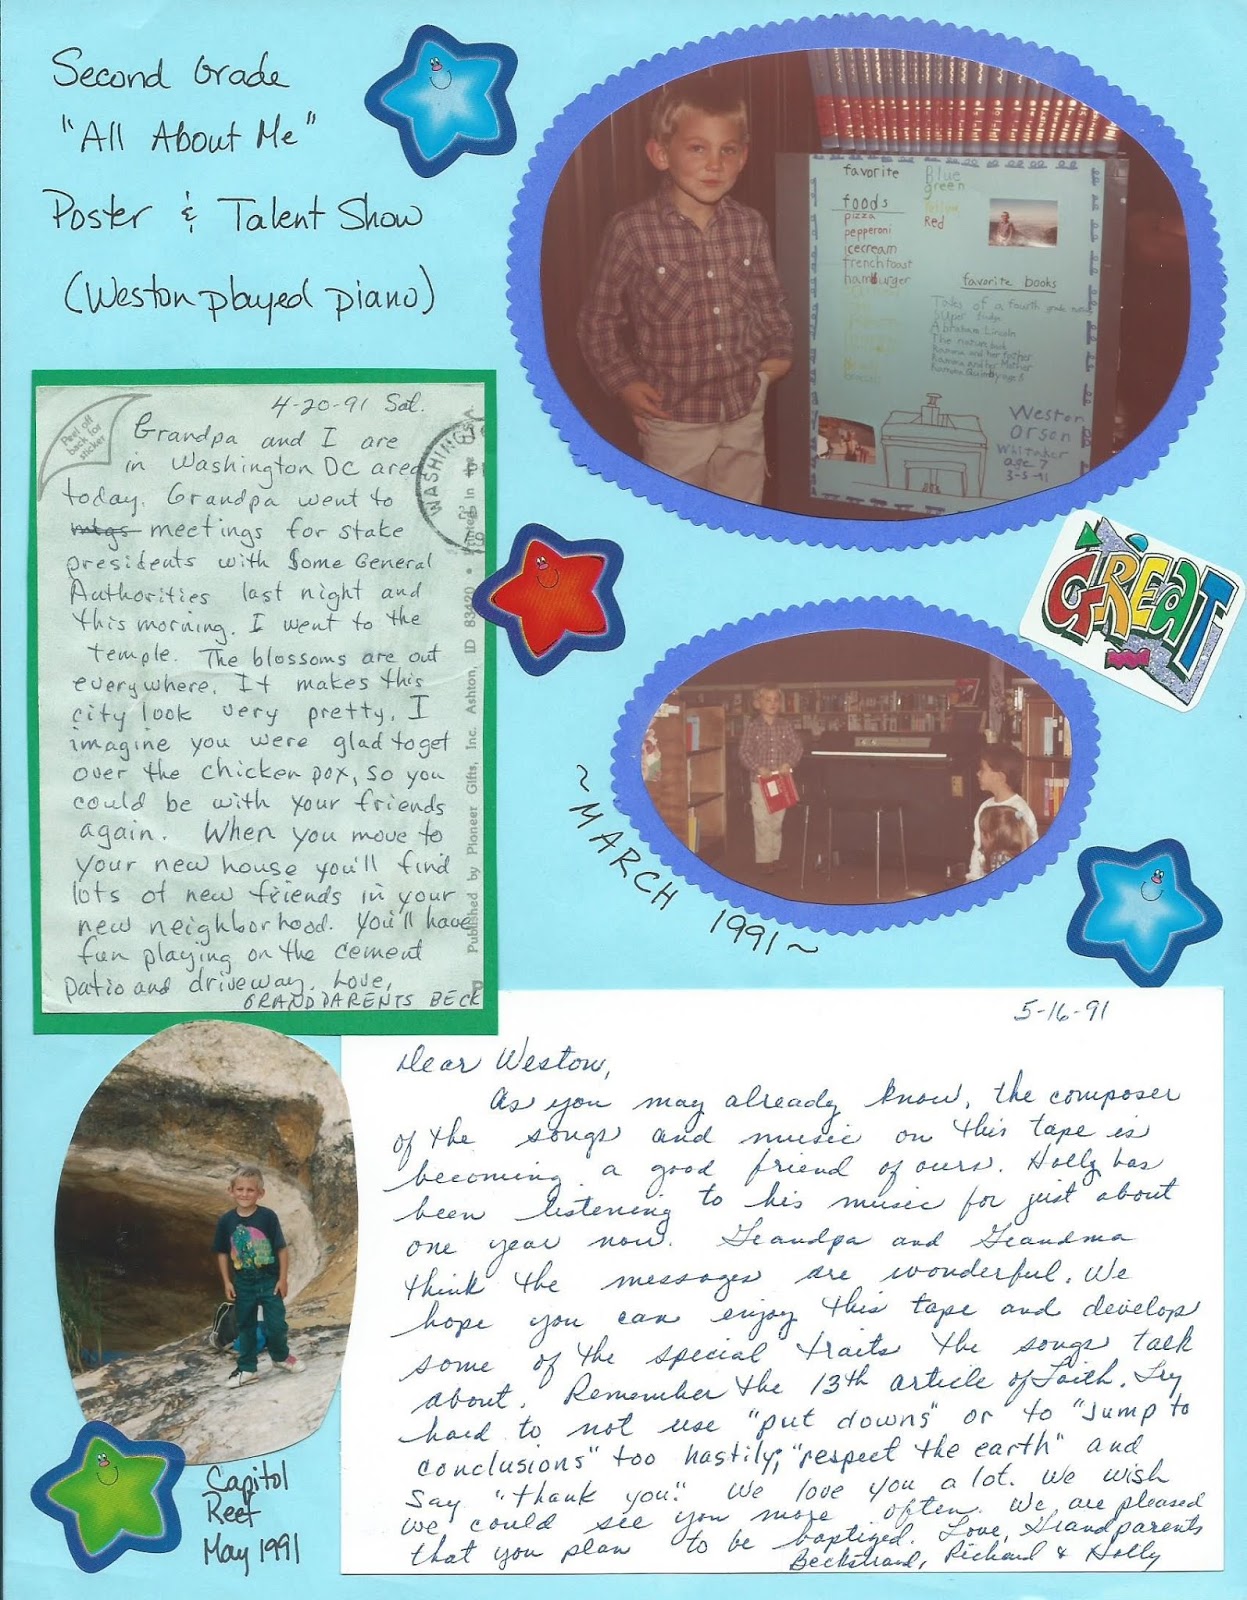 Second Grade
"All About Me"
Poster & Talent Show
(Weston played piano)
favorite
foods
pizza
pepperoni
icecream
frenchtoast
hamburger
Blue
green
yellow
Red
favorite books
Tales of a fourth grade
Super fudge
Abraham Lincoln
The
Ramona and her father
Ramona and her Mother
Ramona Quimby age 8
Weston
Orson
Whitaker
age 7
3-5-91
GREAT
~MARCH 1991~
Peel off
back for
sticker
4-20-91 Sat.
Grandpa and I are
in Washington DC area
today. Grandpa went to
mtgs meetings for stake
presidents with Some General
Authorities last night and
this morning. I went to the
temple. The blossoms are out
everywhere. It makes this
city look very pretty. I
imagine you were glad to get
over the chicken pox, so you
could be with your friends
again. When you move to
your new house you'll find
lots of new friends in your
new neighborhood. You'll have
fun playing on the cement
patio and driveway. Love,
GRANDPARENTS BECK
WASHINGTON
Published by Pioneer Gifts, Inc. Ashton, ID 83420 • Printed in the
5-16-91
Dear Weston,
As you may already know, the composer
of the songs and music on this tape is
becoming a good friend of ours. Holly has
been listening to his music for just about
one year now. Grandpa and Grandma
think the messages are wonderful. We
hope you can enjoy this tape and develop
some of the special traits the songs talk
about. Remember the 13th article of Faith. Try
hard to not use "put downs" or to "jump to
conclusions" too hastily; "respect the earth" and
say "thank you." We love you a lot. We wish
we could see you more often. We are pleased
that you plan to be baptized. Love, Grandparents
Beckstrand, Richard & Holly
Capitol
Reef
May 1991